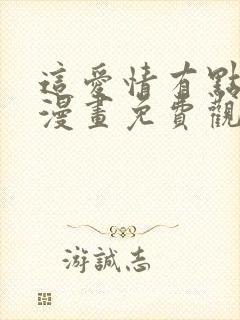 這愛情有點
漫畫免費觀
游誠志